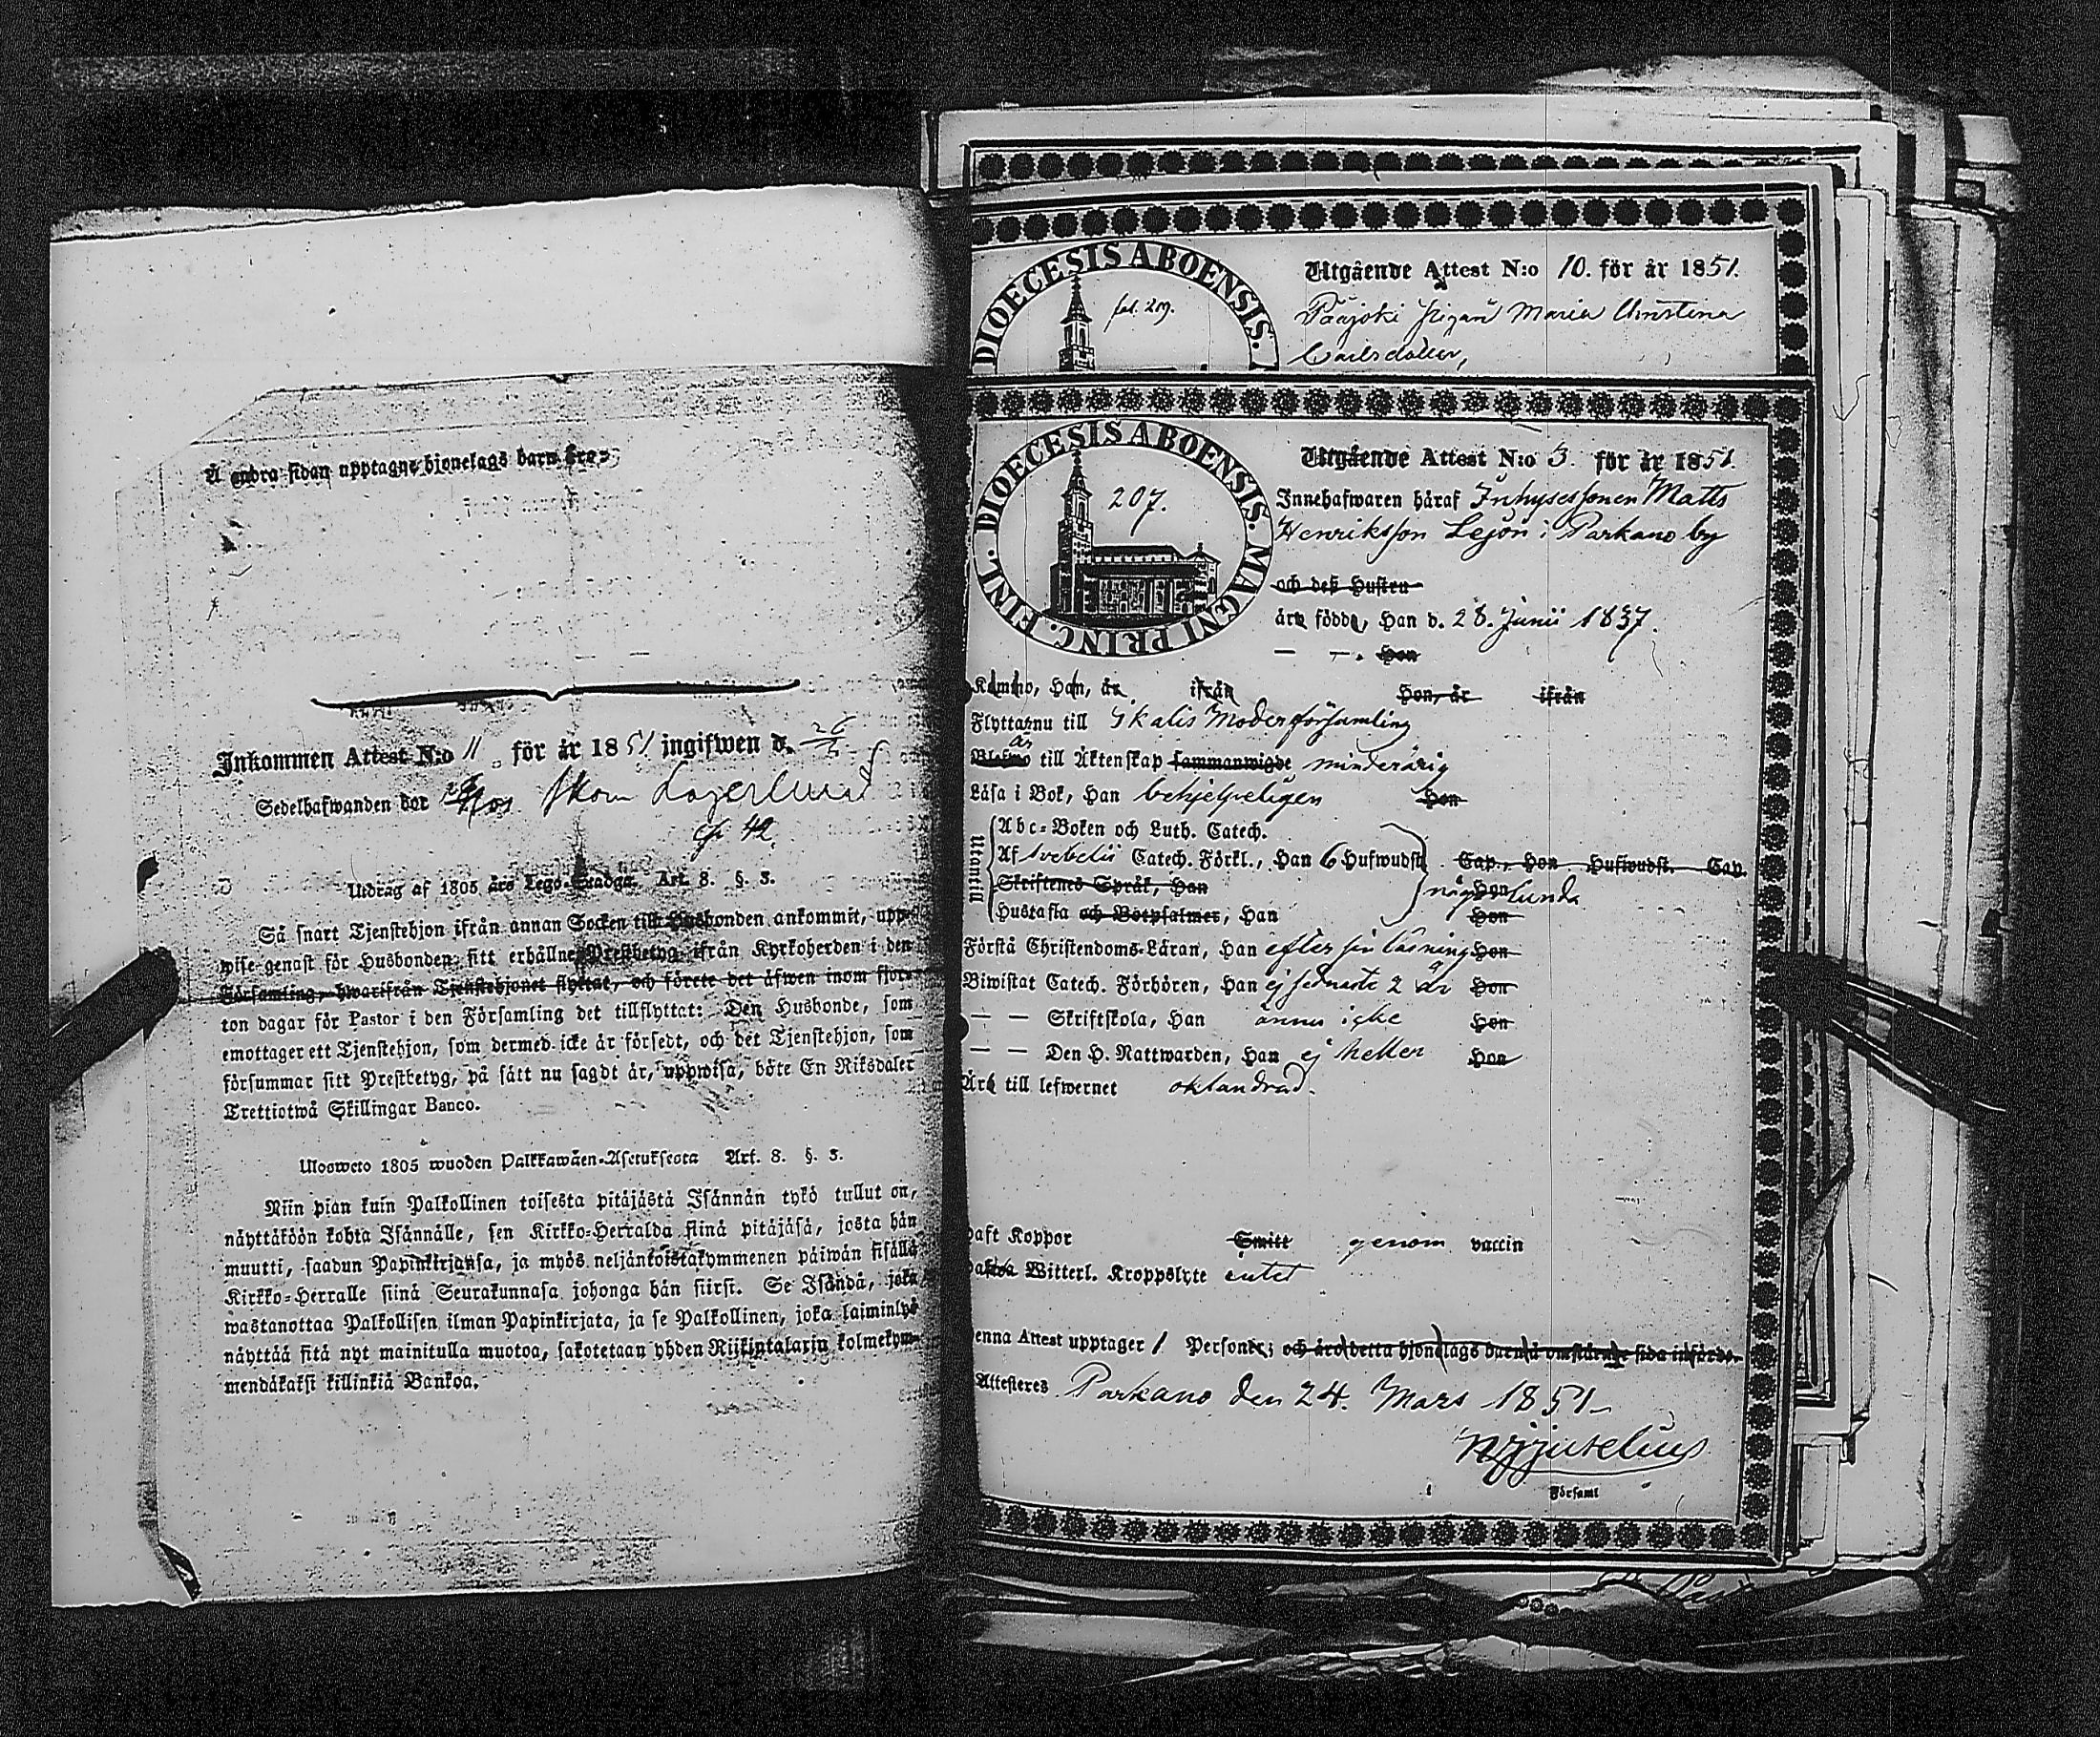 Å andra sidan upptagne hjonelags barn äro:
Inkommen Attest N:o 11. för år 1851 ingifwen d. 26/3
Sedelhafwanden bor hos Skom Lagerlund
42.
Utdrag af 1805 års Lego-Stadga. Art. 8. §. 3.
Så snart Tjenstehjon ifrån annan Socken till Husbonden ankommit, upp-
wise genast för Husbonden sitt erhållne Prestbetyg ifrån Kyrkoherden i den
Församling, hwarifrån Tjenstehjonet flyttat, och förete det äfwen inom fjor-
ton dagar för Pastor i den Församling det tillflyttat: Den Husbonde, som
emottager ett Tjenstehjon, som dermed icke är försedt, och det Tjenstehjon, som
försummar sitt Prestbetyg, på sätt nu sagdt är, uppwisa, böte En Riksdaler
Trettiotwå Skillingar Banco.
Ulosweto 1805 wuoden Palkkawäen-Asetuksesta Art. 8. §. 3.
Niin pian kuin Palkollinen toisesta pitäjästä Isännän tykö tullut on,
näyttäköön kohta Isännälle, sen Kirkko-Herralda siinä pitäjäsä, josta hän
muutti, saadun Papinkirjansa, ja myös neljäntoistakymmenen päiwän sisällä
Kirkko-Herralle siinä Seurakunnasa johonga hän siirst. Se Isändä, joka
wastanottaa Palkollisen ilman Papinkirjata, ja se Palkollinen, joka laiminlyö
näyttää sitä nyt mainitulla muotoa, sakotetaan yhden Riikintalarin kolmekym-
mendäkaksi killinkiä Bankoa.
DIOECESIS ABOENSIS.
fol. 219.
Utgående Attest N:o 10. för år 1851.
Pääjoki Pigan Maria Christina
Carlsdotter,
DIOECESIS ABOENSIS. MAGNI PRINC. FINL.
207.
Utgående Attest N:o 3. för år 1851
Innehafwaren häraf Inhysessonen Matts
Henriksson Lejon i Parkano by
och deß Hustru
äro födde, Han d. 28. Junii 1837.
— —. Hon
Komno, Han, år ifrån Hon, år ifrån
Flytta nu till Ikalis Moderförsamling
är till Äktenskap sammanwigde minderårig
Läsa i Bok, Han behjelpeligen Hon
Utantill
Abc-Boken och Luth. Catech.
Af Svebelii Catech. Förkl., Han 6 Hufwudst. Cap., Hon Hufwudst. Cap.
Skriftenes Språk, Han Hon någorlunda
Hustafla och Botpsalmer, Han Hon
Förstå Christendoms-Läran, Han efter sin läsning Hon
Biwistat Catech. Förhören, Han ej sednaste 2 år Hon
— — Skriftskola, Han ännu icke Hon
— — Den H. Nattwarden, Han ej heller Hon
Äro till lefwernet oklandrad.
Haft Koppor Smitt genom vaccin
Witterl. Kroppslyte intet
Denna Attest upptager 1 Personer; och äro detta hjonelags barn å omstående sida införde.
Attesteres Parkano den 24. Mars 1851
Församl